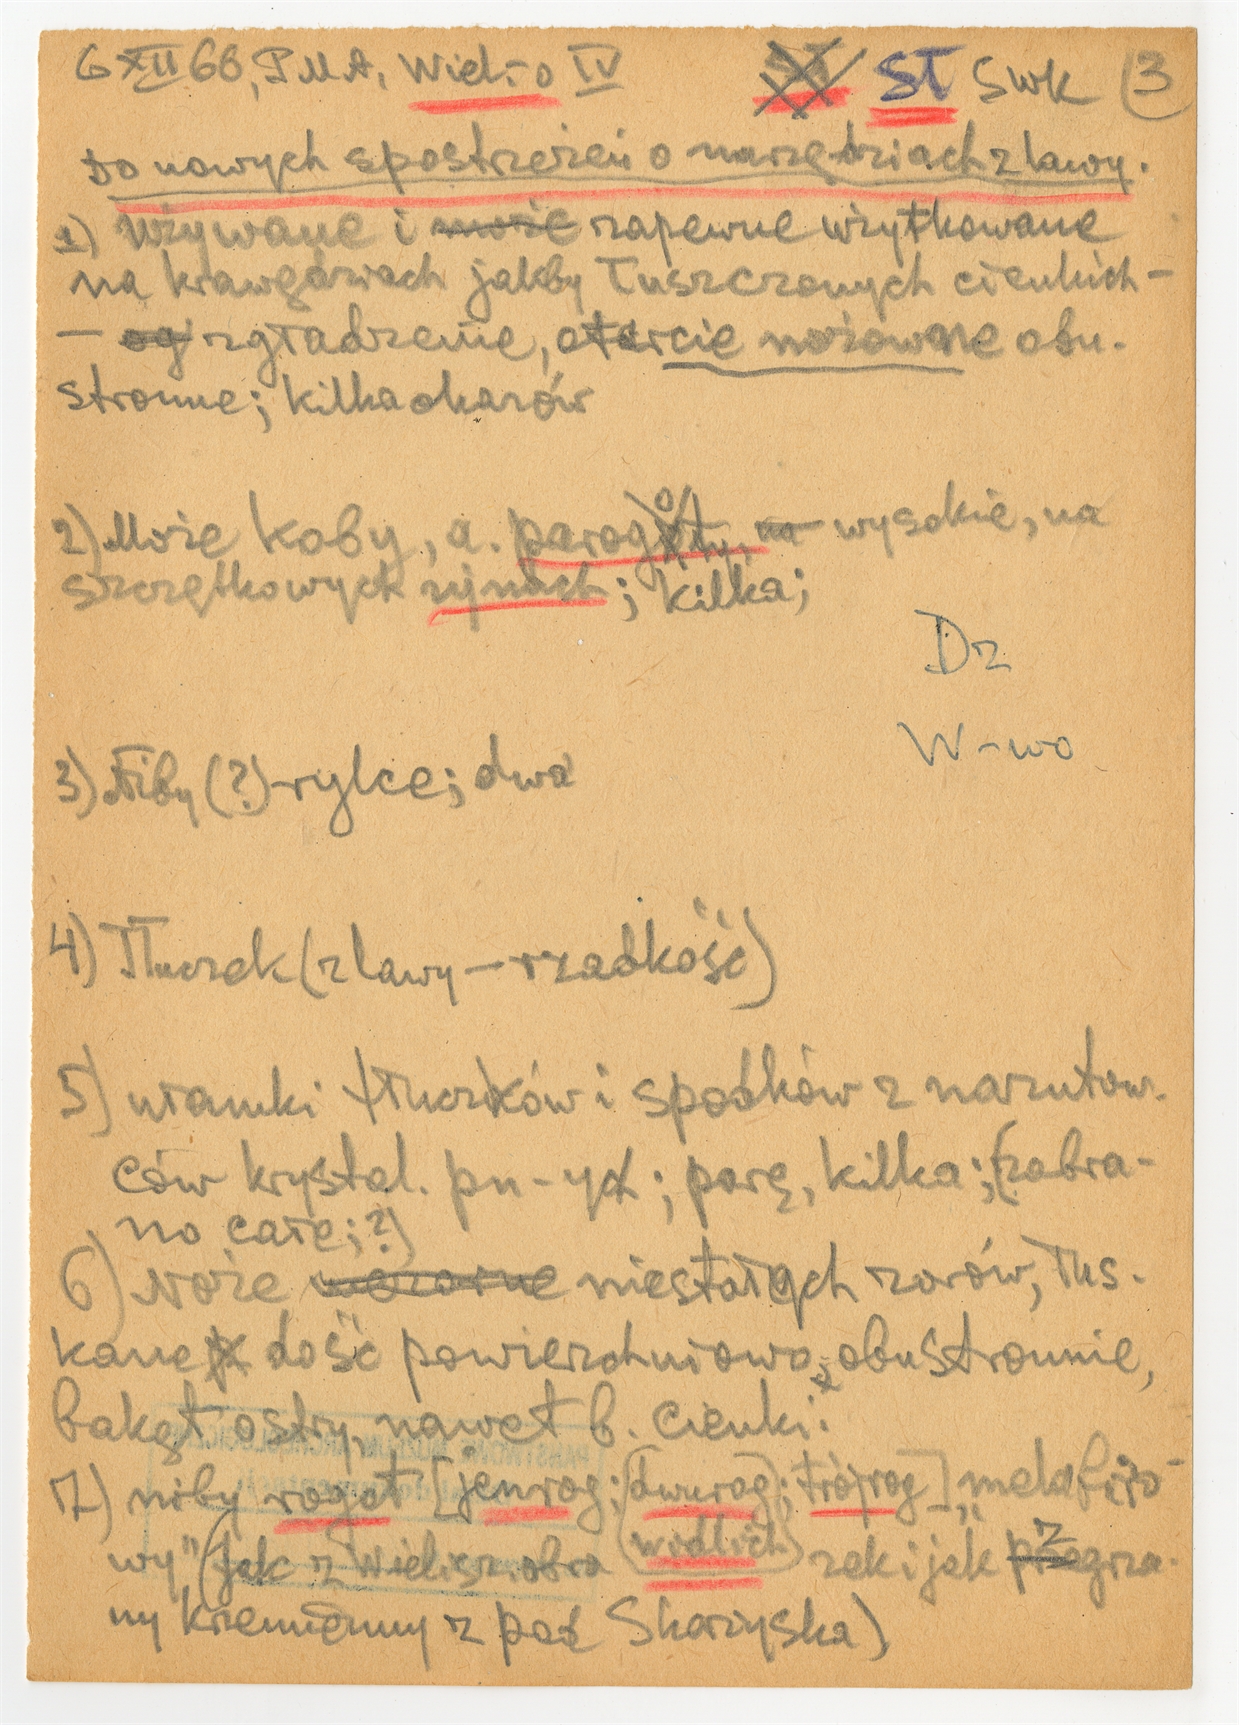 6 XII 66, PMA, Wiel-o IV ST Swk (3
Do nowych spostrzeżeń o narzędziach z lawy.
1) Używane i może zapewne użytkowane
na krawędziach jakby łuszczonych cienkich-
- og zgładzenie, otarcie nożowane obu-
stronne; kilka okazów
2) Może koby, a. parog wysokie, na
szczętkowych ; kilka;
Dz
W-wo
3) Niby (?) rylce; dwa
4) Tłuczek (z lawy - rzadkość)
5) ułamki tłuczków i spodków z narzutow-
ców krystal. pn-ych; parę, kilka; (zabra-
no całe; ?)
6) Noże niestałych zarów, łus-
kane dość powierzchniowo, obustronnie,
bakąt ostry, nawet b. cienki.
7) niby rogat [jenrog; (dwurog); trójrog] „melafiro-
wy" (jak z Wieliszu obra (widlich) zek i jak przegrza-
ny krzemienny z pod Skarżyska)